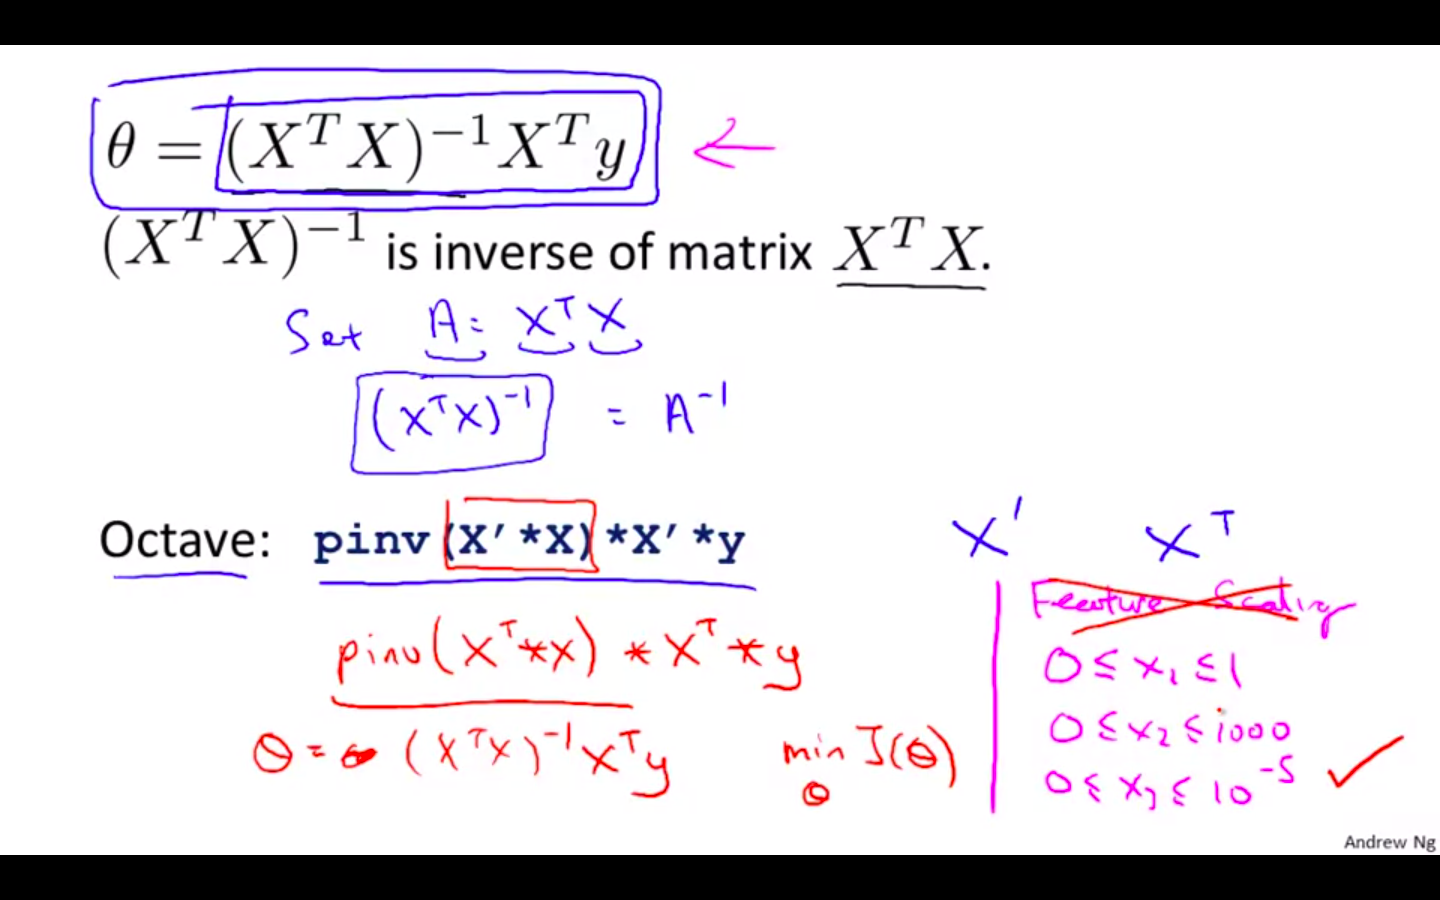 θ = (XᵀX)⁻¹Xᵀy
(XᵀX)⁻¹ is inverse of matrix XᵀX.
Set A = XᵀX
(XᵀX)⁻¹ = A⁻¹
Octave: pinv(X'*X)*X'*y
X' Xᵀ
pinv(Xᵀ*X)*Xᵀ*y
θ = (XᵀX)⁻¹Xᵀy
min J(θ)
θ
Feature Scaling
0 ≤ x₁ ≤ 1
0 ≤ x₂ ≤ 1000
0 ≤ x₃ ≤ 10⁻⁵
Andrew Ng